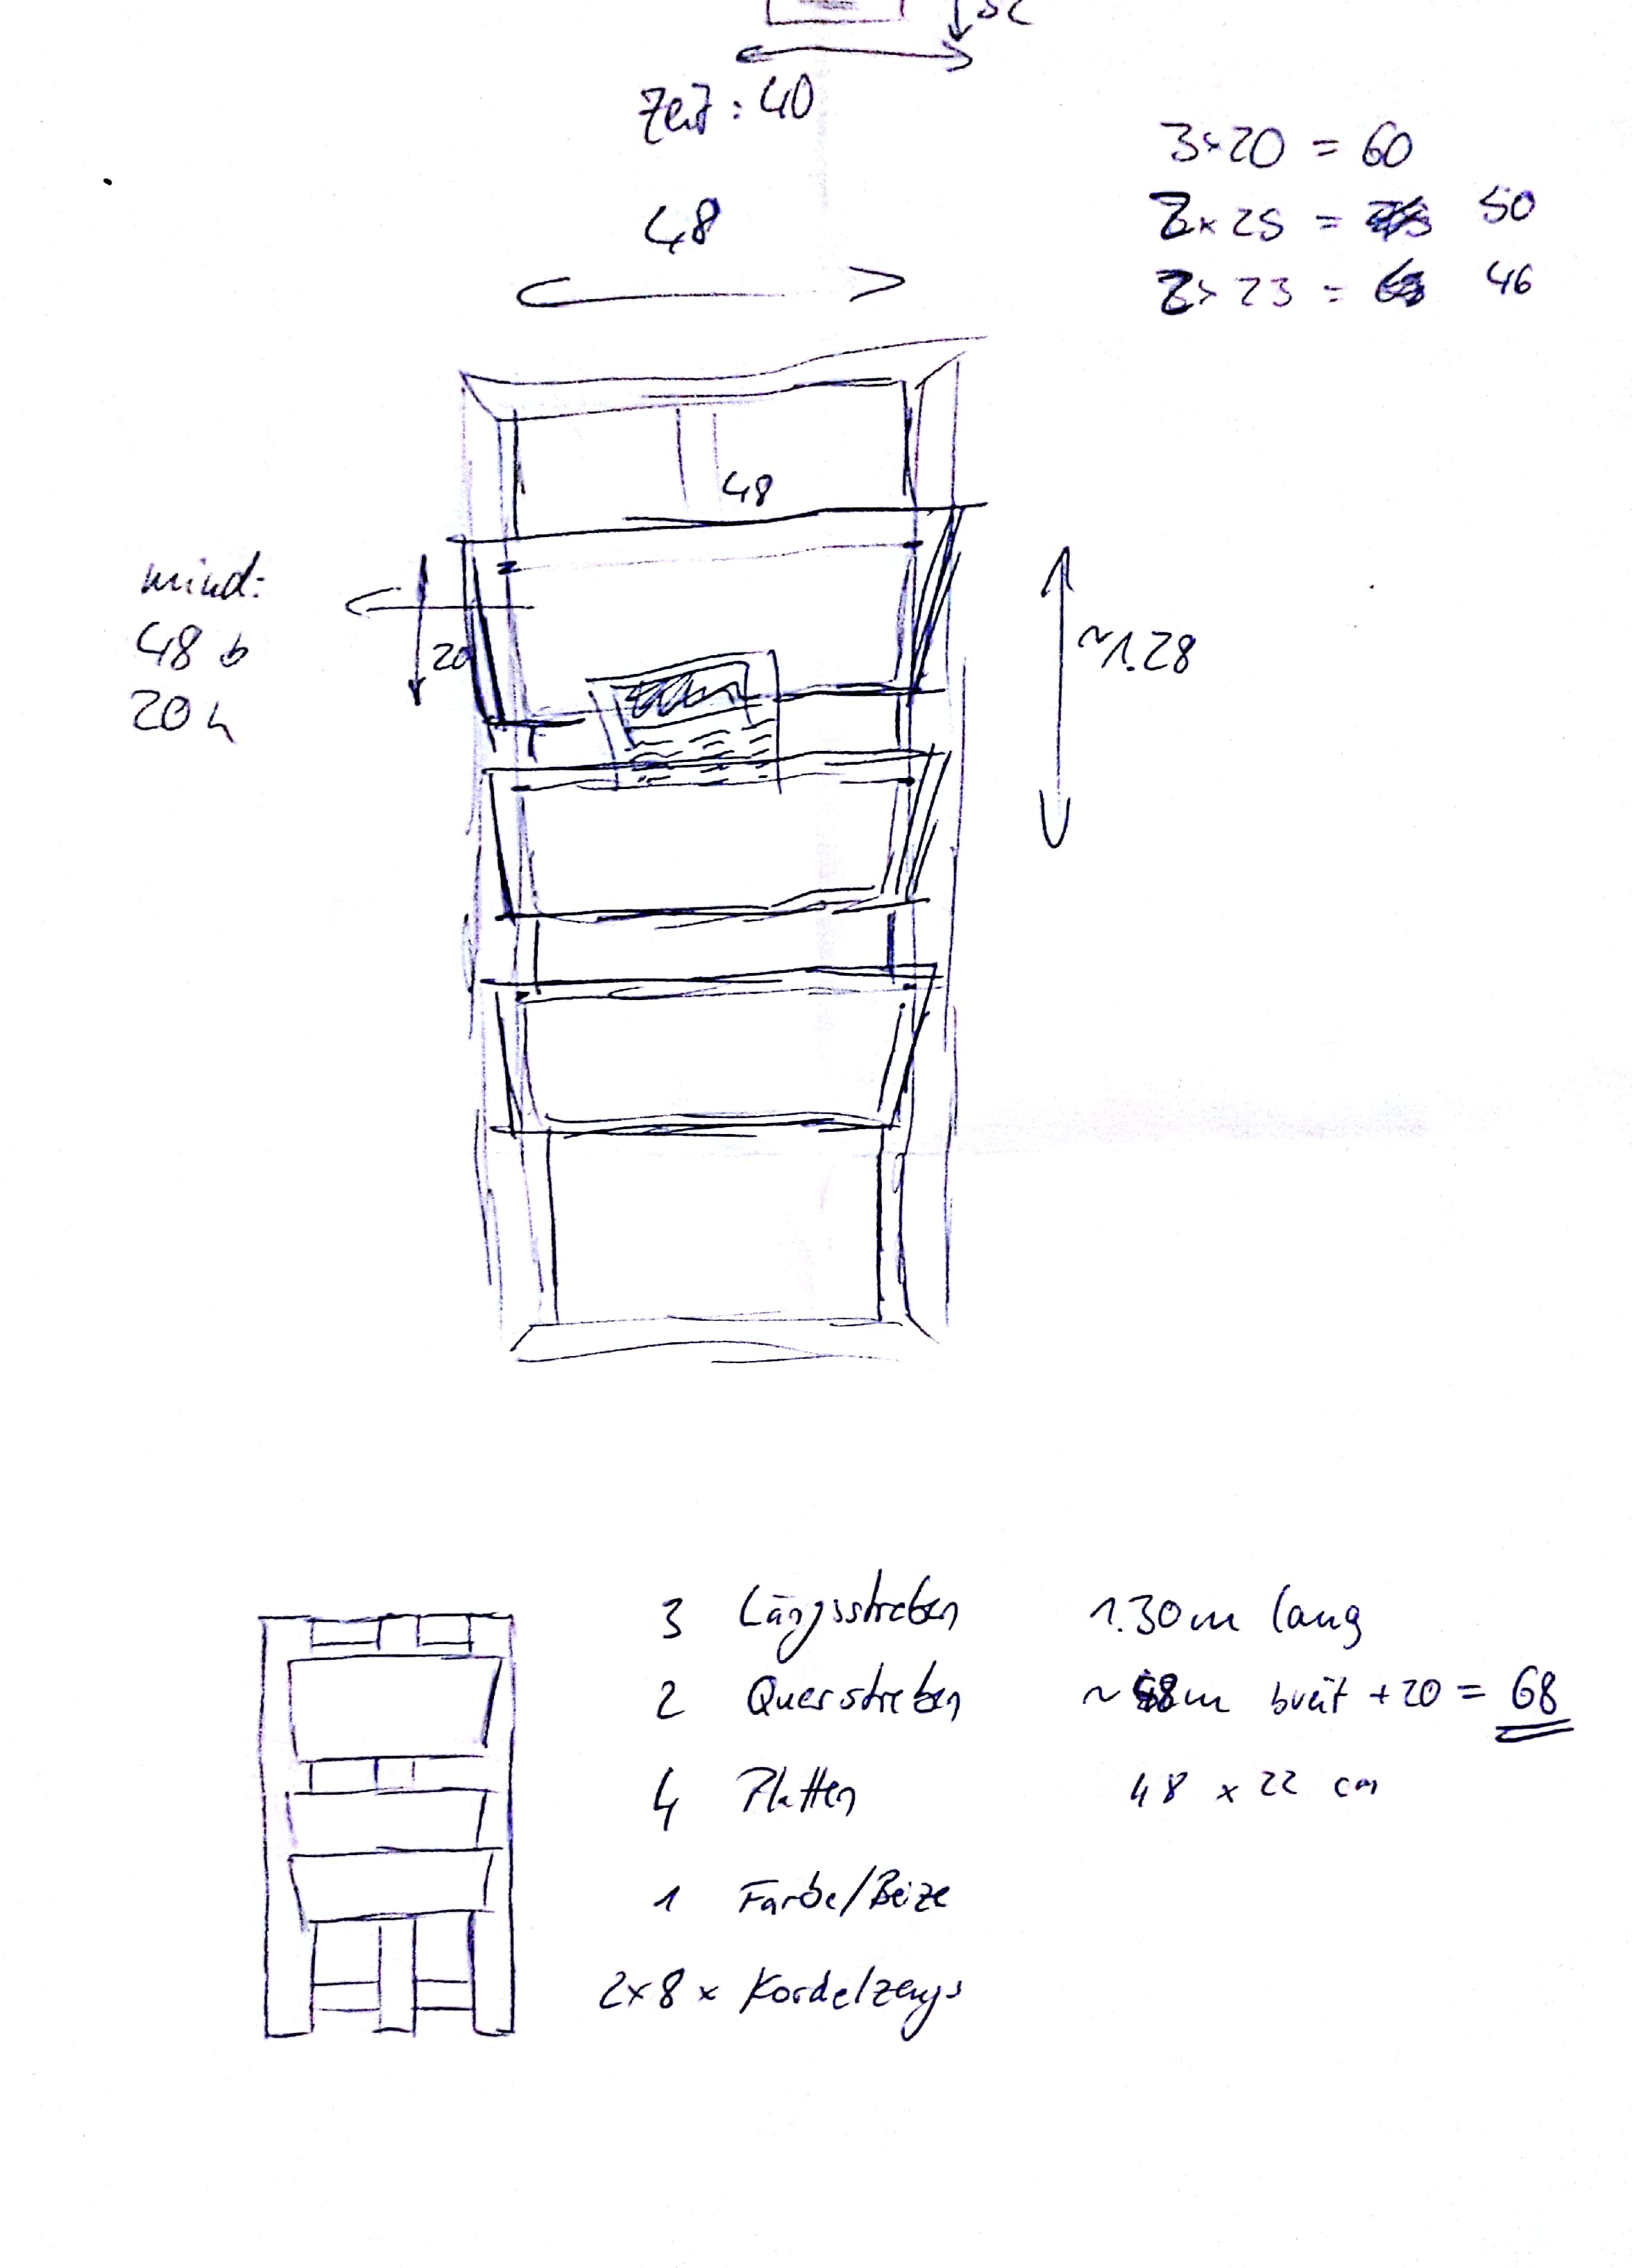 Zeit : 40
3x20 = 60
2x 25 = 50
2x 23 = 46
48
48
mind:
48 b
20 h
20
~1.28
3 Längsstreben 1.30m lang
2 Querstreben ~ 48m breit +20 = 68
4 Platten 48 x 22 cm
1 Farbe/Beize
2x8 x Kordelzeugs